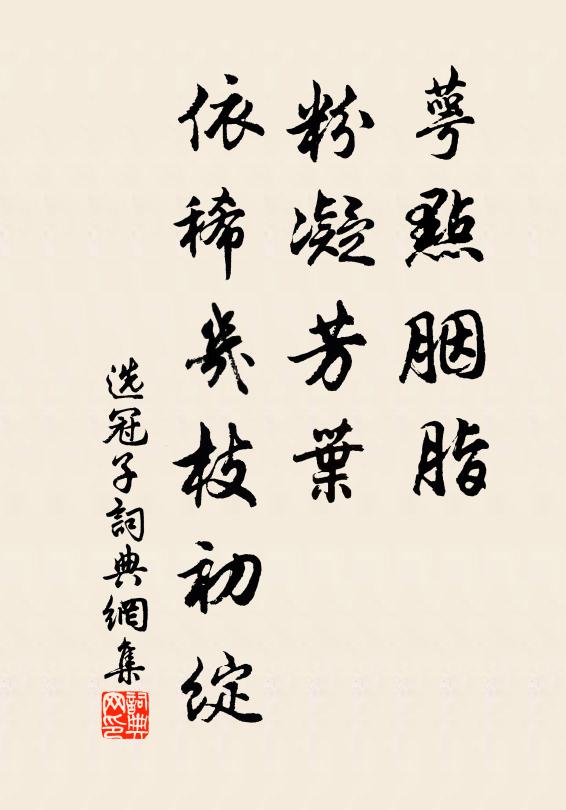 萼點胭脂
粉凝芳葉
依稀幾枝初綻
选冠子詞典網集
詞典网印